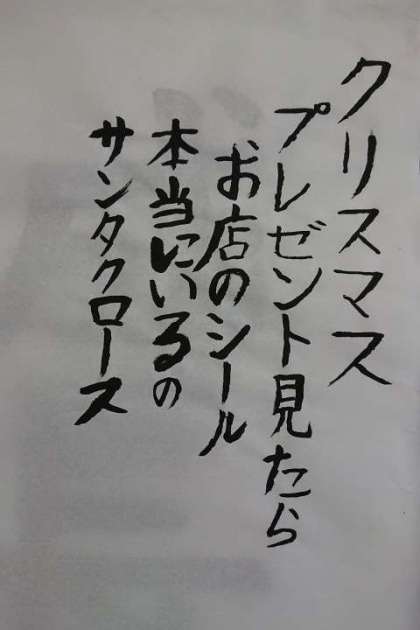 クリスマス
プレゼント見たら
お店のシール
本当にいるの
サンタクロース